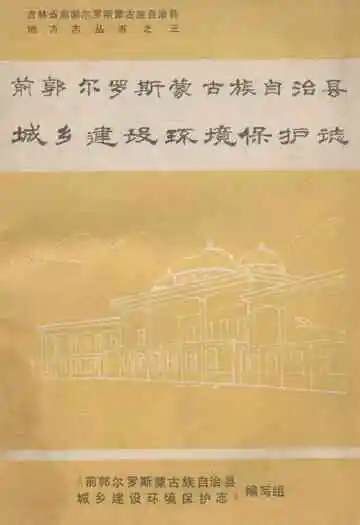 吉林省前郭尔罗斯蒙古族自治县
地方志丛书之三
前郭尔罗斯蒙古族自治县
城乡建设环境保护志
《前郭尔罗斯蒙古族自治县
城乡建设环境保护志》编写组